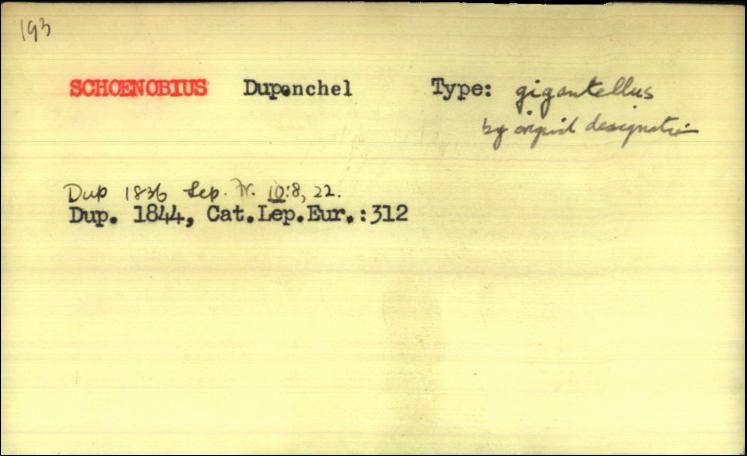 193
SCHOENOBIUS Duponchel Type: gigantellus
by original designation
Dup 1836 Lep. Fr. 10:8, 22.
Dup. 1844, Cat.Lep.Eur.:312